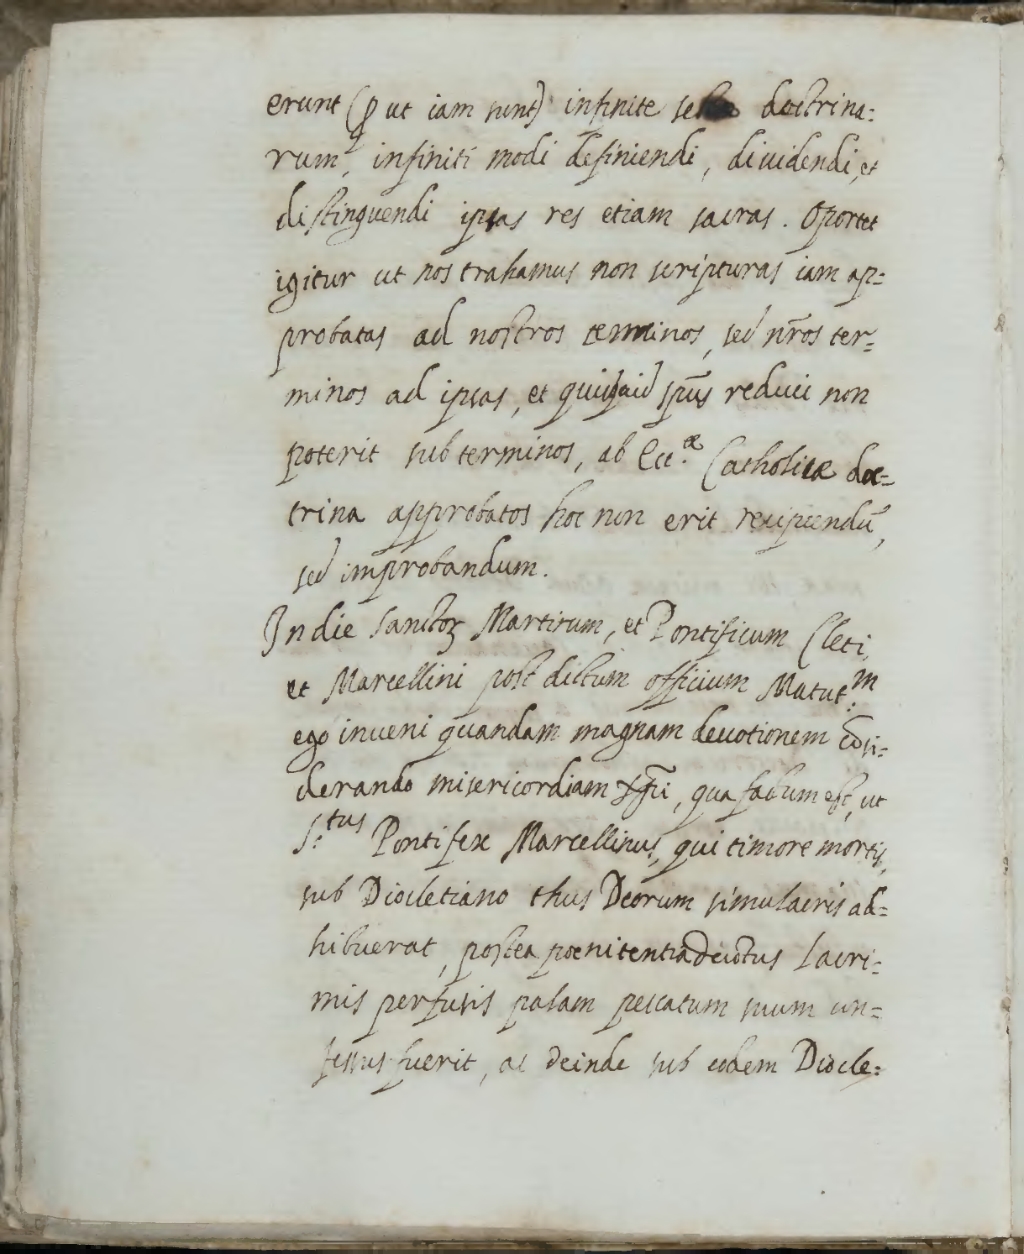 erunt (p ut iam sunt) infinite doctrina:
rum, infiniti modi definiendi, diuidendi, et
distinguendi ipsas res etiam sacras. Oportet
igitur ut nos trahamus non scripturas iam ap=
probatas ad nostros terminos, sed nr̃os ter=
minos ad ipsas, et quidquid reduci non
poterit sub terminos, ab Ecc.æ Catholicæ doc=
trina approbatos hoc non erit recipiendũ,
sed improbandum.
In die Sanctoꝝ Martirum, et Pontificum Cleti,
et Marcellini post dictum officium Matut.m
ego inueni quandam magnam deuotionem cõsi=
derando misericordiam Xp̃i, qua factum est, ut
S.tus Pontifex Marcellinus, qui timore mortis,
sub Diocletiano thus Deorum simulacris ad=
hibuerat, postea poenitentia ductus lacri=
mis perfusis palam peccatum suum con=
fessus fuerit, ac deinde sub eodem Diocle=